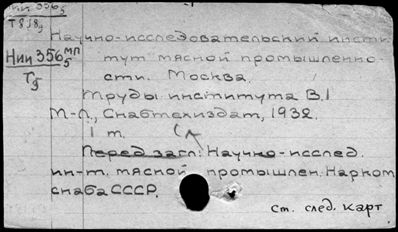 Т 8
Научно-исследовательский инсти
Нии 356 МП
5
тут мясной промышленно-
Т
5
сти. Москва.
Труды института В.1
М-Л., Снабтехиздат, 1932.
1 т.
Перед загл: Научно-исслед.
ин-т. мясной промышлен. Нарком
снаба СССР.
Ст. след. карт